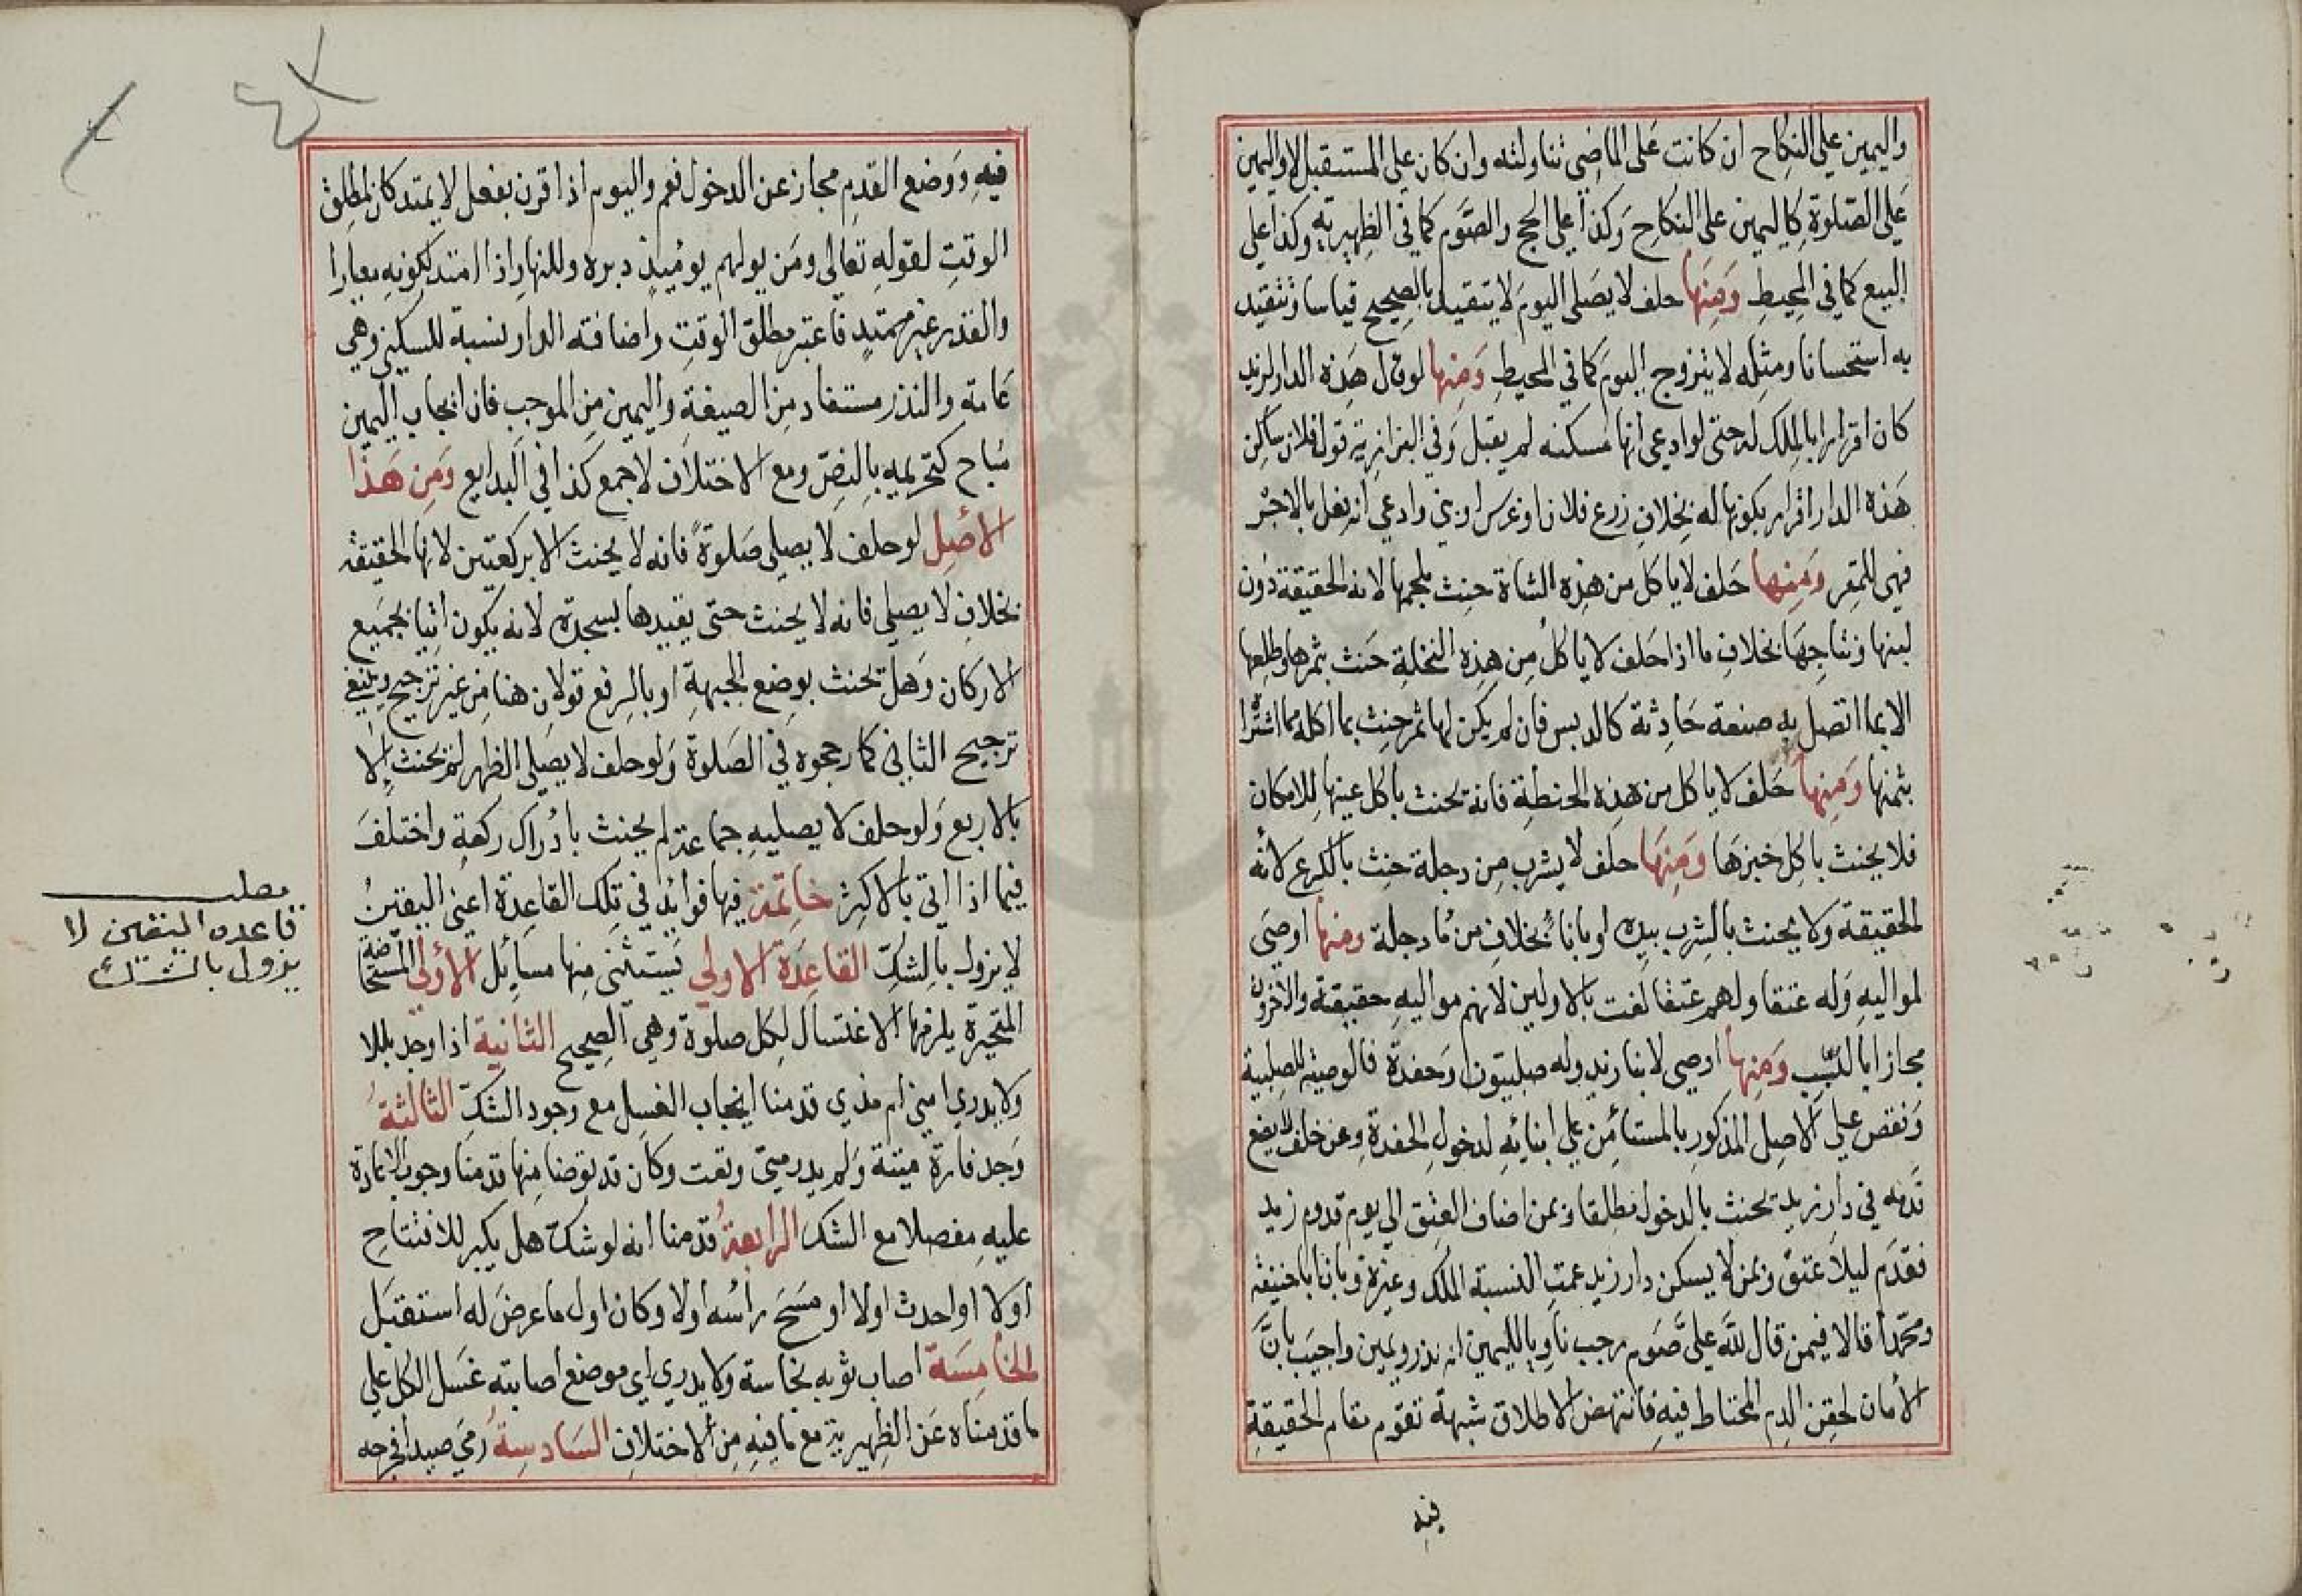 واليمين على النكاح ان كانت على الماضي تناولته وان كان على المستقبل لا واليمين
على الصلوة كاليمين على النكاح وكذا على الحج والصوم كما في الظهيرية وكذا على
البيع كما في المحيط ومنها حلف لا يصلى اليوم لا يتقيد بالصحيح قياسا وتتقيد
به استحسانا ومثله لا يتزوج اليوم كما في المحيط ومنها لو قال هذه الدار لزيد
كان اقرارا بالملك له حتى لو ادعى انها مسكنه لم يقبل وفي البزازية قوله فلان ساكن
هذه الدار اقرار بكونها له بخلاف زرع فلان او غرس او بنى وادعى انه فعل بالاجر
فهي للمقر ومنها حلف لا ياكل من هذه الشاة حنث بلحمها لانه الحقيقة دون
لبنها ونتاجها بخلاف ما اذا حلف لا ياكل من هذه النخلة حنث بثمرها وطلعها
الا بما اتصل به صنعة حادثة كالدبس فان لم يكن لها ثمر حنث بما اكله مما اشترا
بثمنها ومنها حلف لا ياكل من هذه الحنطة فانه يحنث باكل عينها للامكان
فلا يحنث باكل خبزها ومنها حلف لا يشرب من دجلة حنث بالكرع لانه
الحقيقة ولا يحنث بالشرب بيده او باناء بخلاف من ماء دجلة ومنها اوصى
لمواليه وله عتقا ولهم عتقا لغت بالاولين لانهم مواليه حقيقة والاخرون
مجازا بالتسبب ومنها اوصى لابنا زيد وله صلبيون وحفدة فالوصية للصلبية
ونقض على الاصل المذكور بالمستامن على ابنائه لدخول الحفدة وعن حلف لا يضع
قدمه في دار زيد يحنث بالدخول مطلقا وبمن اضاف العتق الى يوم قدوم زيد
فقدم ليلا عتق وبمن لا يسكن دار زيد عمت النسبة الملك وغيره وبان ابا حنيفة
ومحمدا قالا فيمن قال لله على صوم رجب ناويا لليمين انه نذر ويمين واجيب بان
الامان لحقن الدم المحتاط فيه فانتهض الاطلاق شبهة تقوم مقام الحقيقة
فيه
فيه ووضع القدم مجاز عن الدخول فعم واليوم اذا قرن بفعل لا يمتد كان لمطلق
الوقت لقوله تعالى ومن يولهم يومئذ دبره وللنهار اذا امتد لكونه معيارا
والقدر غير ممتد فاعتبر مطلق الوقت واضافته الدار نسبة للسكنى وهي
عامة والنذر مستفاد من الصيغة واليمين من الموجب فان ايجاب اليمين
مباح كتحريمه بالنص ومع الاختلاف لا جمع كذا في البدايع ومن هذا
الاصل لو حلف لا يصلى صلوة فانه لا يحنث الا بركعتين لانها الحقيقة
بخلاف لا يصلى فانه لا يحنث حتى يقيدها بسجدة لانه يكون اتيا بجميع
الاركان وهل يحنث بوضع الجبهة او بالرفع قولان هنا من غير ترجيح وينبغي
ترجيح الثاني كما رجحوه في الصلوة ولو حلف لا يصلى الظهر لم يحنث الا
بالاربع ولو حلف لا يصليه جماعة لم يحنث بادراك ركعة واختلف
فيما اذا اتي بالاكثر خاتمة فيها فوائد في تلك القاعدة اعنى اليقين
لا يزول بالشك القاعدة الاولى يستثنى منها مسائل الاولى المستحاضة
المتحيرة يلزمها الاغتسال لكل صلوة وهي الصحيح الثانية اذا وجد بللا
ولا يدرى امني ام مذي قدمنا ايجاب الغسل مع وجود الشك الثالثة
وجد فارة ميتة ولم يدر متى وقعت وكان قد توضا منها قدمنا وجوب الاعادة
عليه مفصلا مع الشك الرابعة قدمنا انه لو شك هل يكبر للافتتاح
اولا او احدث اولا او مسح راسه اولا وكان اول ما عرض له استقبل
الخامسة اصاب ثوبه نجاسة ولا يدرى اى موضع اصابته غسل الكل على
ما قدمناه عن الظهيرية مع ما فيه من الاختلاف السادسة رمى صيدا فجرحه
مطلب
قاعده اليقين لا
يزول بالشك